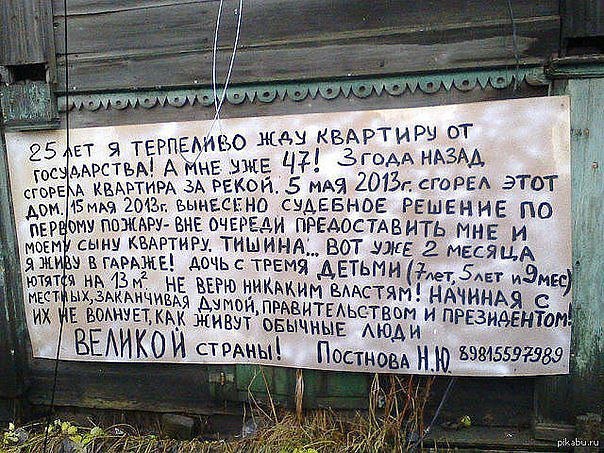 25 лет я терпеливо жду квартиру от
государства! А мне уже 47! 3 года назад
сгорела квартира за рекой. 5 мая 2013г. сгорел этот
дом. 15 мая 2013г. вынесено судебное решение по
первому пожару - вне очереди предоставить мне и
моему сыну квартиру. Тишина... Вот уже 2 месяца
я живу в гараже! Дочь с тремя детьми (7 лет, 5 лет и 9 мес)
ютятся на 13 м² не верю никаким властям! Начиная с
местных, заканчивая думой, правительством и президентом!
их не волнует, как живут обычные люди
ВЕЛИКОЙ страны! Постнова Н.Ю. 89815597989
pikabu.ru